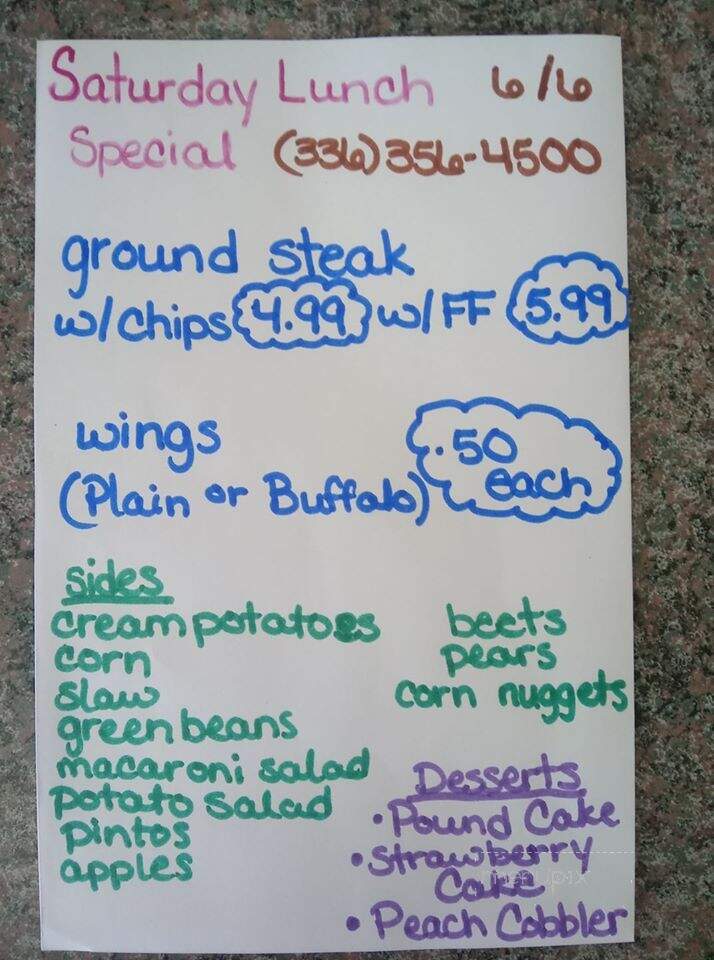 Saturday Lunch 6/6
Special (336)356-4500
ground steak
w/chips 4.99 w/FF 5.99
wings .50
(Plain or Buffalo) each
sides
cream potatoes
corn
slaw
green beans
macaroni salad
potato salad
pintos
apples
beets
pears
corn nuggets
Desserts
• Pound Cake
• Strawberry
Cake
• Peach Cobbler
menupix